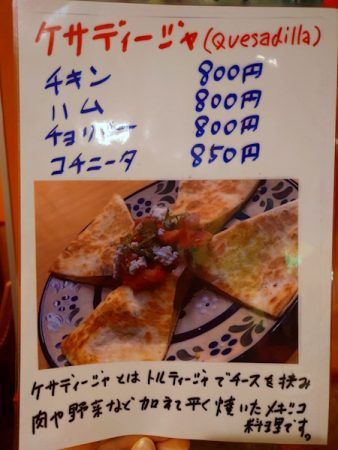 ケサディージャ(Quesadilla)
チキン 800円
ハム 800円
チョリソー 800円
コチニータ 850円
ケサディージャとはトルティージャでチーズを挟み
肉や野菜など加えて平く焼いたメキシコ
料理です。